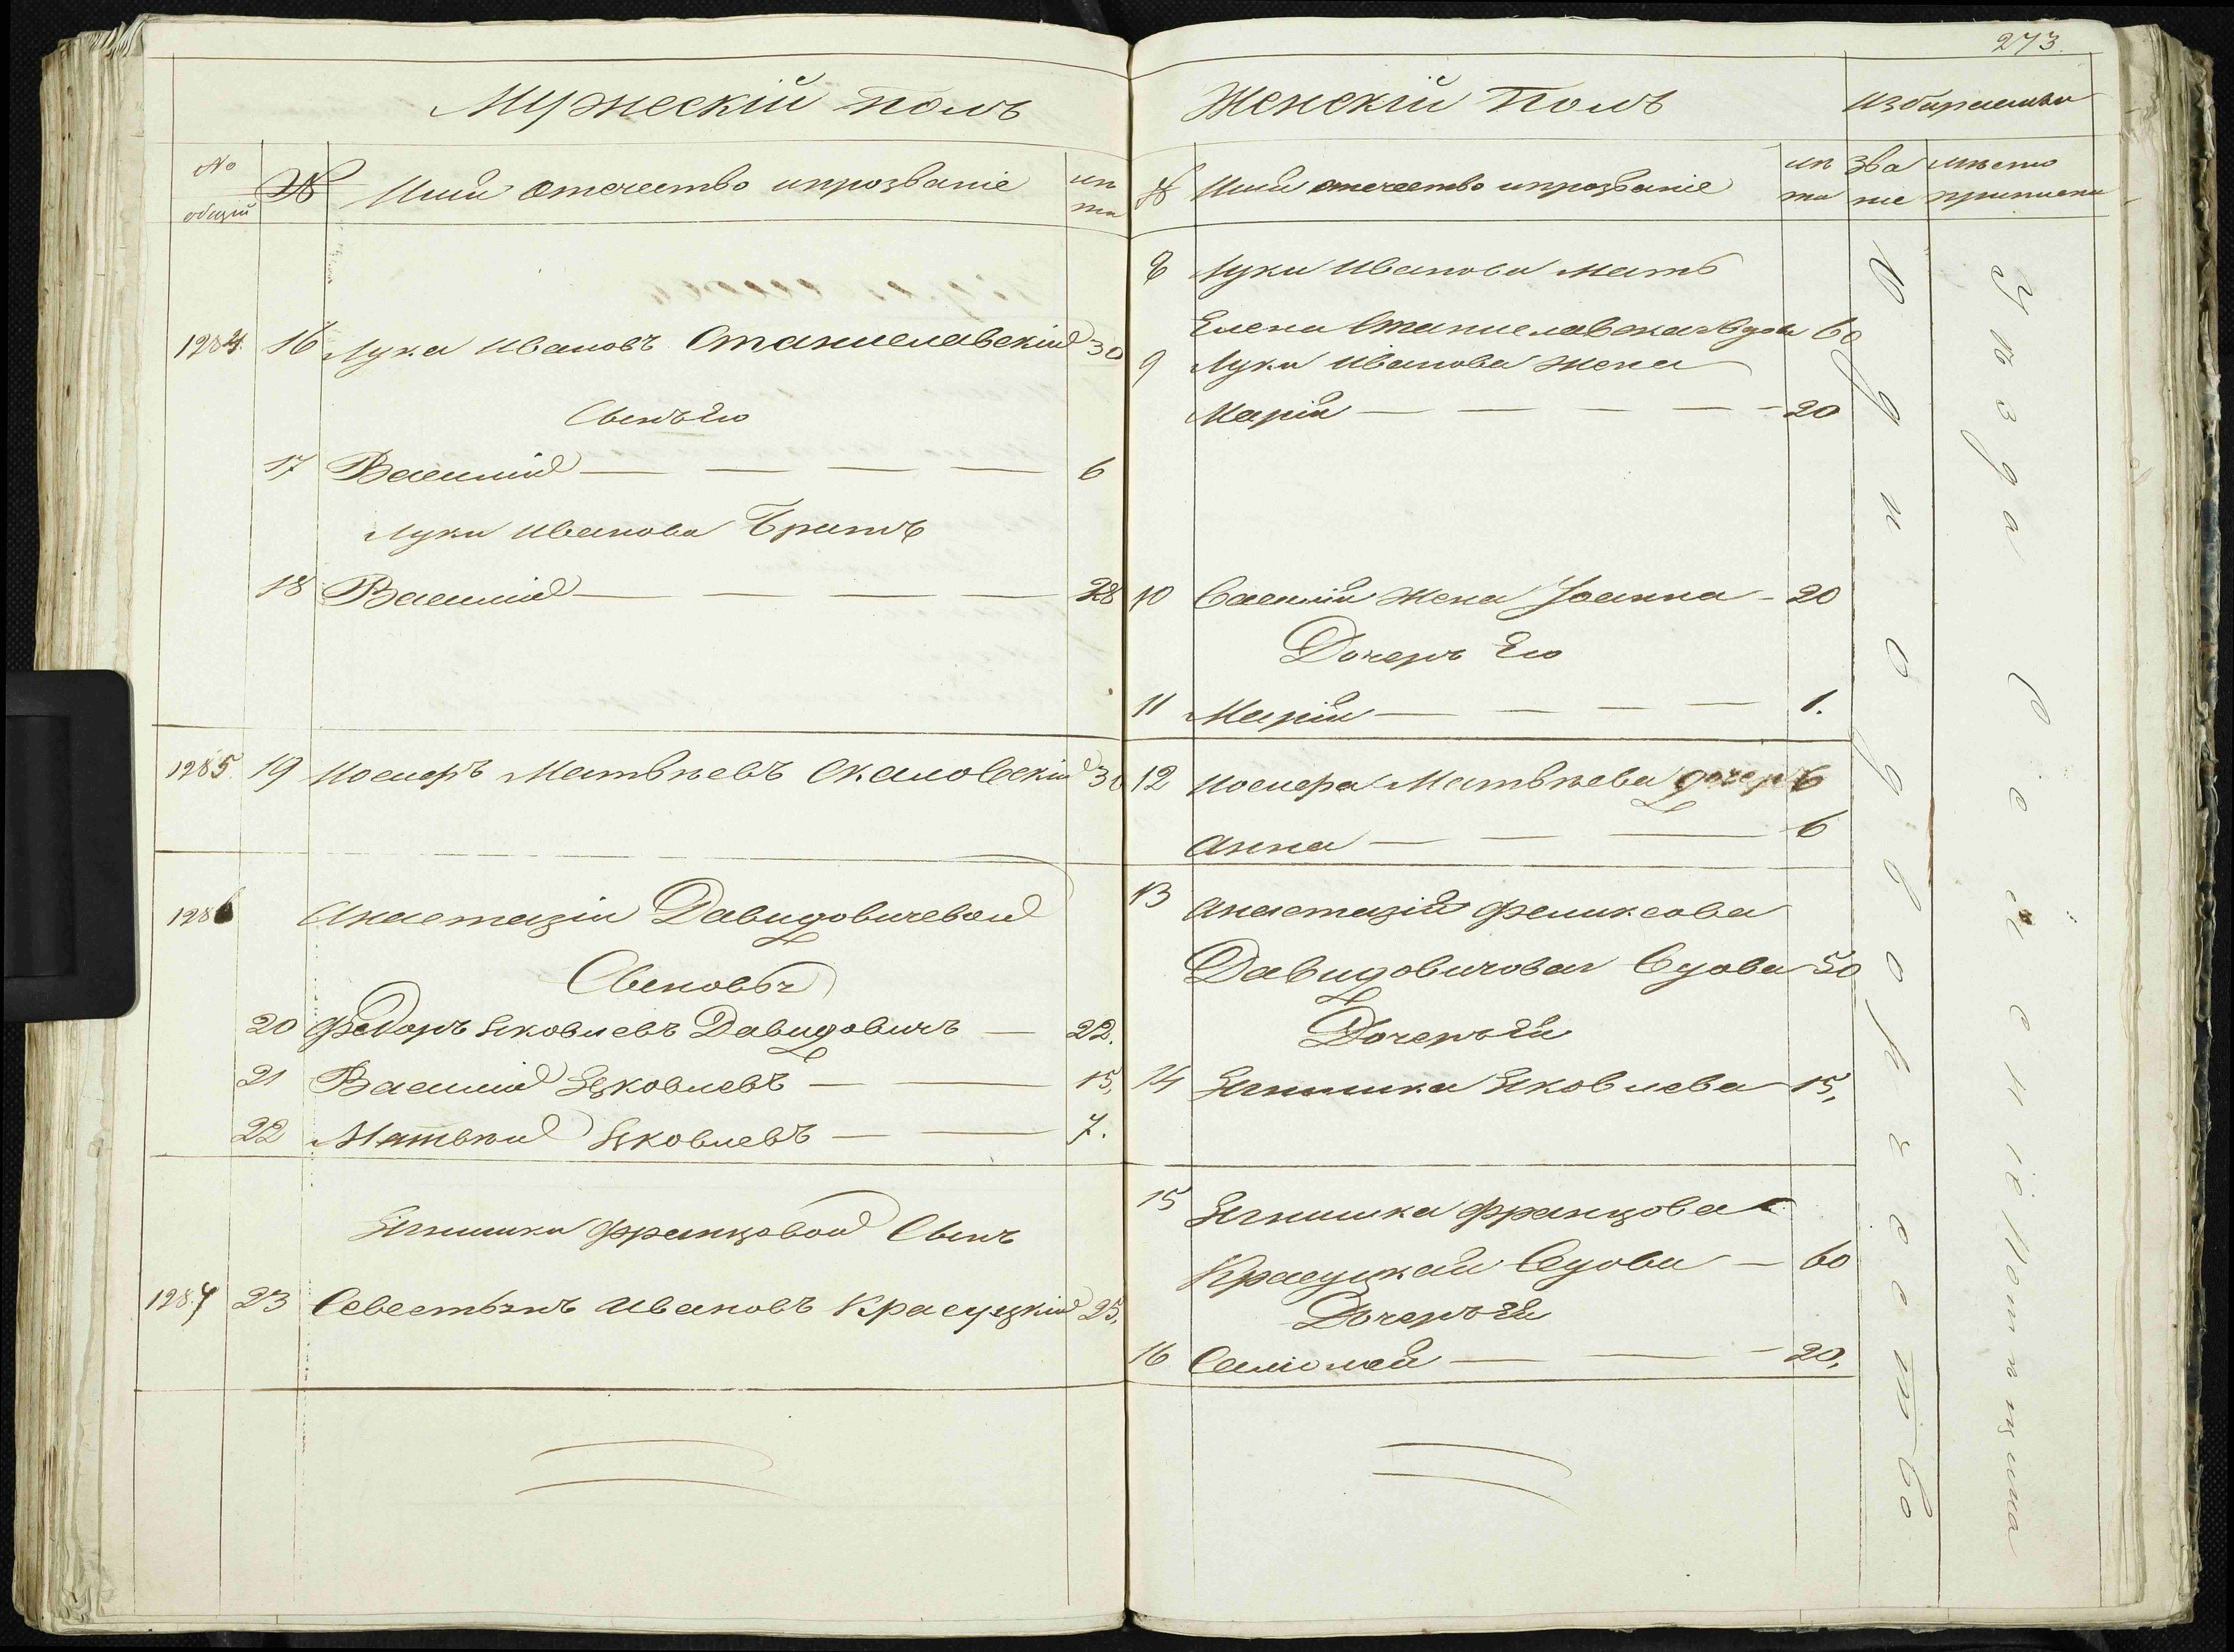 273.
Мужескій полъ
№ общій
№
Имя отечество ипрозваніе
лѣта
1284. 16 Лука Ивановъ Станиславскій 30
Сынъ Его
17 Василій — — — — 6
Луки Иванова Братъ
18 Василій — — — — 28
1285. 19 Иосифъ Матвѣевъ Скаловскій 30
1286 Анастазіи Давидовичевой
Сыновья
20 Федоръ Яковлевъ Давидовичъ — 22.
21 Василій Яковлевъ — — 15,
22 Матвѣй Яковлевъ — — 7.
Ягнишки Францовой Сынъ
1287 23 Севестьянъ Ивановъ Красуцкій 25,
Женскій Полъ
Избираемыя
№
Имя отечество ипрозваніе
лѣта
Званіе
мѣсто приписки
8 Луки Иванова Мать
Елена Станиславская Вдова 60
9 Луки Иванова Жена
Марія — — — — 20
10 Василія Жена Іоанна — 20
Дочерь Его
11 Марія — — — — 1.
12 Иосифа Матвѣева дочерь 6
Анна — — — 6
13 Анастазія Феликсова
Давидовичовая Вдова 50
Дочерь Ея
14 Ягнишка Яковлева 15,
15 Ягнишка Францова
Красуцкая Вдова — 60
Дочерь Ея
16 Саломея — — — 20,
Однодворческое
Уѣзда